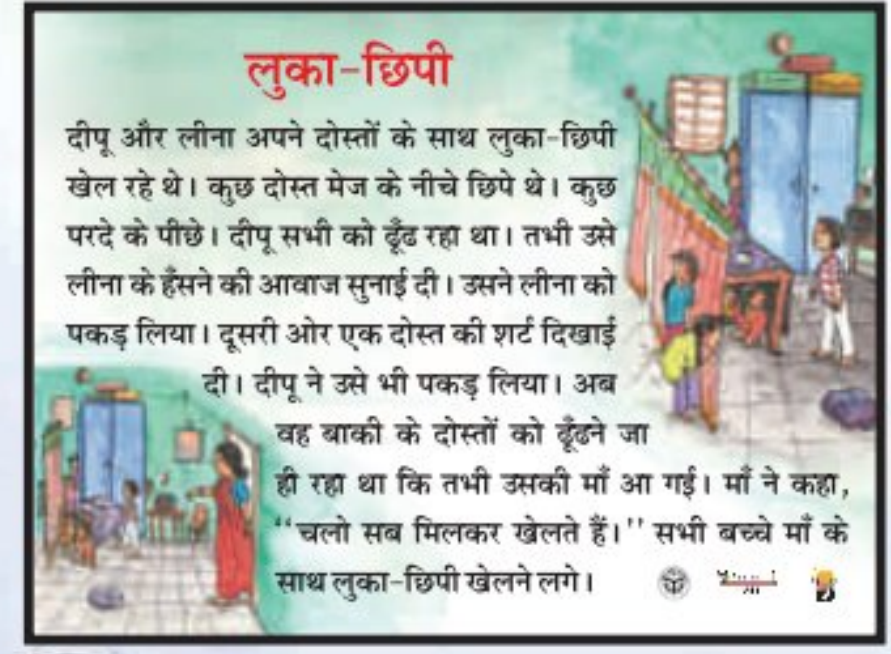 लुका-छिपी
दीपू और लीना अपने दोस्तों के साथ लुका-छिपी
खेल रहे थे। कुछ दोस्त मेज के नीचे छिपे थे। कुछ
परदे के पीछे। दीपू सभी को ढूँढ रहा था। तभी उसे
लीना के हँसने की आवाज सुनाई दी। उसने लीना को
पकड़ लिया। दूसरी ओर एक दोस्त की शर्ट दिखाई
दी। दीपू ने उसे भी पकड़ लिया। अब
वह बाकी के दोस्तों को ढूँढने जा
ही रहा था कि तभी उसकी माँ आ गई। माँ ने कहा,
“चलो सब मिलकर खेलते हैं।” सभी बच्चे माँ के
साथ लुका-छिपी खेलने लगे।